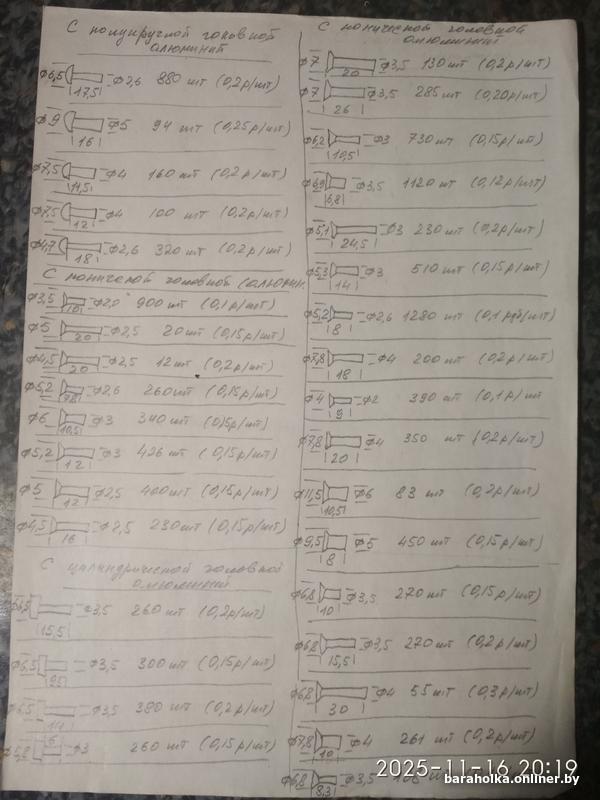 С полукруглой головкой
алюминий
ø6,5 17,5 ø2,6 880 шт (0,2р/шт)
ø9 16 ø5 94 шт (0,25р/шт)
ø7,5 11,5 ø4 160 шт (0,2р/шт)
ø7,5 12 ø4 100 шт (0,2р/шт)
ø4,7 18 ø2,6 320 шт (0,2р/шт)
С конической головкой (алюмин.
ø3,5 10 ø2,0 900 шт (0,1р/шт)
ø5 20 ø2,5 20 шт (0,15р/шт)
ø4,5 20 ø2,5 12 шт (0,2р/шт)
ø5,2 ø2,6 260 шт (0,15р/шт)
ø6 10,5 ø3 340 шт (0,15р/шт)
ø5,2 12 ø3 426 шт (0,15р/шт)
ø5 12 ø2,5 400 шт (0,15р/шт)
ø4,5 16 ø2,5 230 шт (0,15р/шт)
С цилиндрической головкой
алюминий
ø6,5 15,5 ø3,5 260 шт (0,2р/шт)
ø6,5 ø3,5 300 шт (0,15р/шт)
ø6,5 ø3,5 380 шт (0,2р/шт)
ø5,8 ø3 260 шт (0,15р/шт)
С конической головкой
алюминий
ø7 20 ø3,5 130 шт (0,2р/шт)
ø7 26 ø3,5 285 шт (0,20р/шт)
ø6,2 10,5 ø3 730 шт (0,15р/шт)
ø6,9 6,8 ø3,5 1120 шт (0,12р/шт)
ø5,1 24,5 ø3 230 шт (0,2р/шт)
ø5,3 14 ø3 510 шт (0,15р/шт)
ø5,2 8 ø2,6 1280 шт (0,1 руб/шт)
ø7,8 18 ø4 200 шт (0,2р/шт)
ø4 9 ø2 390 шт (0,1р/шт
ø7,8 20 ø4 350 шт (0,2р/шт)
ø11,5 10,5 ø6 83 шт (0,2р/шт)
ø9,5 8 ø5 450 шт (0,15р/шт)
ø6,8 10 ø3,5 270 шт (0,15р/шт)
ø6,8 15,5 ø3,5 270 шт (0,2р/шт)
ø6,8 30 ø4 55 шт (0,3р/шт)
ø7,8 10 ø4 261 шт (0,2р/шт)
ø6,8 8,3 ø3,5
2025-11-16 20:19
baraholka.onliner.by